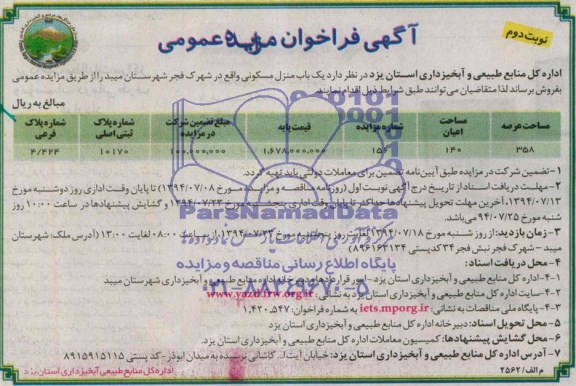 نوبت دوم
آگهی فراخوان مزایده عمومی
اداره کل منابع طبیعی و آبخیزداری استان یزد در نظر دارد یک باب منزل مسکونی واقع در شهرک فجر شهرستان میبد را از طریق مزایده عمومی
بفروش برساند لذا متقاضیان می‌توانند طبق شرایط ذیل اقدام نمایند.
مبالغ به ریال
مساحت عرصه مساحت اعیان شماره مزایده قیمت پایه مبلغ تضمین شرکت در مزایده شماره پلاک ثبتی اصلی شماره پلاک فرعی
۳۵۸ ۱۴۰ ۱,۶۷۸,۰۰۰,۰۰۰ ۱۰۰,۰۰۰,۰۰۰ ۱۰۱۷۰ ۴/۴۲۴
۱-تضمین شرکت در مزایده طبق آیین‌نامه تضمین برای معاملات دولتی باید تهیه گردد.
۲-مهلت دریافت اسناد از تاریخ درج آگهی نوبت اول (روزنامه مناقصه و مزایده مورخ ۱۳۹۴/۰۷/۰۸) تا پایان وقت اداری روز دوشنبه مورخ
۱۳۹۴/۰۷/۱۳، آخرین مهلت تحویل پیشنهادها حداکثر تا پایان وقت اداری پنجشنبه مورخ ۱۳۹۴/۰۷/۲۳ و گشایش پیشنهادها در ساعت ۱۰:۰۰ روز
شنبه مورخ ۹۴/۰۷/۲۵ می‌باشد.
۳- زمان بازدید: از روز شنبه مورخ ۱۳۹۴/۰۷/۱۸ لغایت روز پنجشنبه مورخ ۱۳۹۴/۰۷/۲۳ از ساعت ۰۸:۰۰ لغایت ۱۳:۰۰ (آدرس ملک: شهرستان
میبد – شهرک فجر نبش فجر ۳۴ کدپستی ۸۹۶۱۶۳۱۳۴)
۴- محل دریافت اسناد:
۴-۱- اداره کل منابع طبیعی و آبخیزداری استان یزد-امور قراردادها و دبیرخانه اداره منابع طبیعی و آبخیزداری شهرستان میبد
۴-۲- سایت اداره کل منابع طبیعی و آبخیزداری استان یزد به نشانی: www.yazd.frw.org.ir
۴-۳- پایگاه ملی مناقصات به نشانی: iets.mporg.ir به شماره فراخوان: ۱,۴۲۰,۵۴۷
۵- محل تحویل اسناد: دبیرخانه اداره کل منابع طبیعی و آبخیزداری استان یزد.
۶- محل گشایش پیشنهادها: کمیسیون معاملات اداره کل منابع طبیعی و آبخیزداری استان یزد.
۷- آدرس اداره کل منابع طبیعی و آبخیزداری استان یزد: خیابان آیت‌ا... کاشانی نرسیده به میدان ابوذر- کد پستی ۸۹۱۵۹۱۵۱۱۵
م الف/ ۲۵۶۲
اداره کل منابع طبیعی و آبخیزداری استان یزد
ParsNamadData
پایگاه اطلاع رسانی مناقصه و مزایده
۰۲۱-۸۸۳۴۹۶۷۰-۵